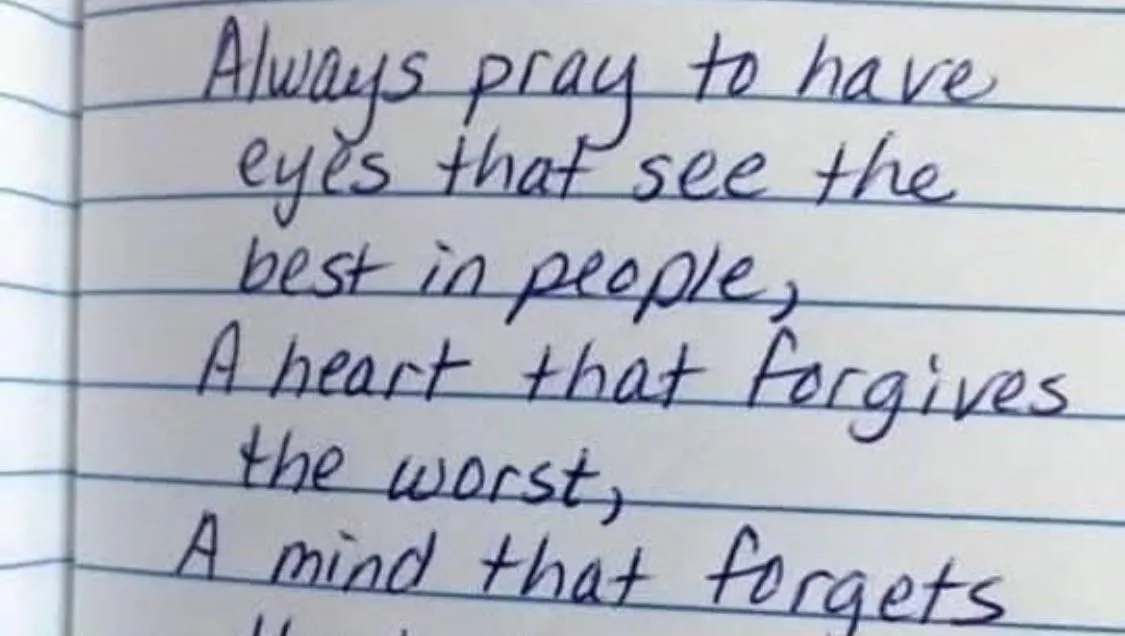 Always pray to have
eyes that see the
best in people,
A heart that forgives
the worst,
A mind that forgets